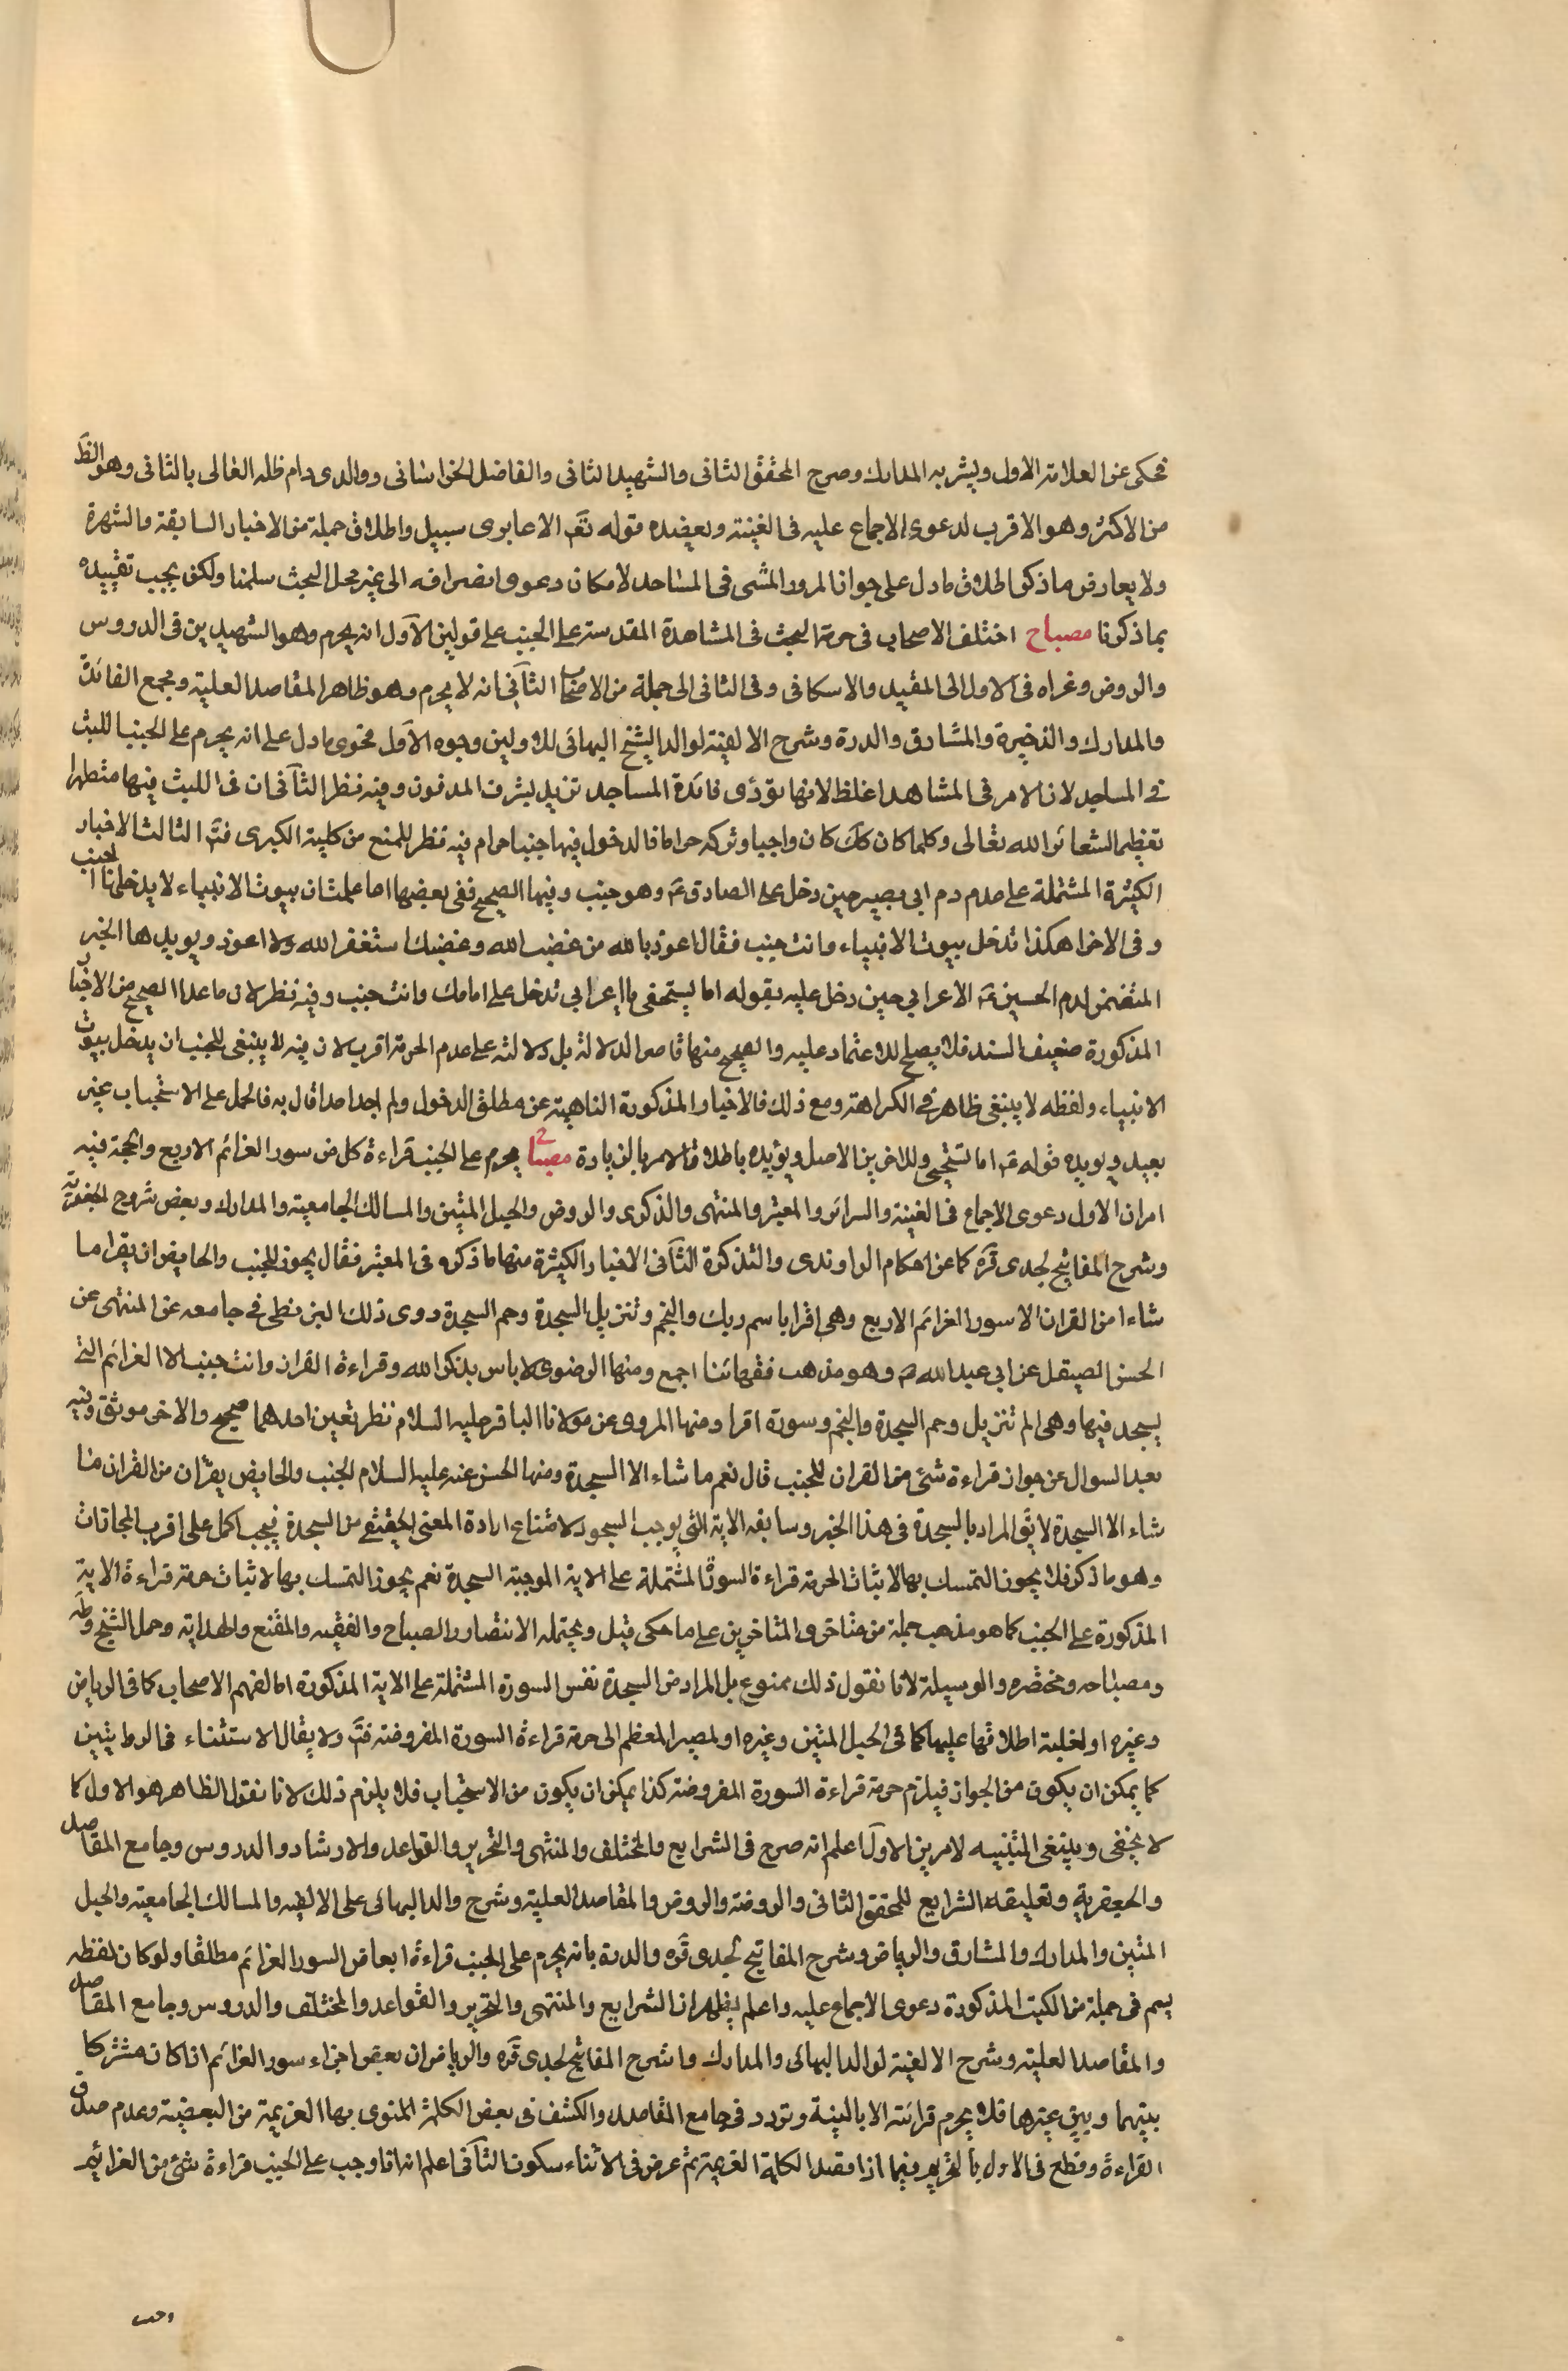 فحكى عن العلامة الاول ويشير به المدارك وصرح المحقق الثانى والشهيد الثانى والفاضل الخراسانى ووالدى دام ظله العالى بالثانى وهو الظّ
من الاكثر وهو الاقرب لدعوى الاجماع عليه فى الغنية ويعضده قوله تعَ الا عابرى سبيل واطلاق جملة من الاخبار السابقة والشهرة
ولا يعارض ما ذكر اطلاق ما دل على جواز المرور المشى فى المساجد لامكان دعوى انصرافه الى غير محل البحث سلمنا ولكن يجب تقييده
بما ذكرنا مصباح اختلف الاصحاب فى حرمة البحث فى المشاهدة المقدسة على الجنب على قولين الآول انه يحرم وهو الشهيدين فى الدروس
والروض وغراه فى الاول الى المفيد والاسكافى وفى الثانى الى جملة من الاصحاب الثآنى انه لا يحرم وهو ظاهر المقاصد العلية ومجمع الفائدة
والمدارك والذخيرة والمشارق والدرة وشرح الالفية لوالد الشيخ البهائى للاولين وجوه الآول فحوى ما دل على انه يحرم على الجنب اللبث
فى المساجد لان الامر فى المشاهد اغلظ لانها تؤدى فائدة المساجد تزيد لشرف المدفون وفيه نظر الثآنى ان فى اللبث فيها متطهرا
تعظيم الشعائر الله تعالى وكلما كان كك كان واجبا وتركه حراما فالدخول فيها جنبا حرام فيه نظر للمنع من كلية الكبرى فتم الثالث الاخبار
الكثيرة المشتملة على عدم دم ابى بصير حين دخل على الصادق عَ وهو جنب وفيها الصحيح ففى بعضها اما علمت ان بيوت الانبياء لا يدخلها الجنب
وفى الاخر اهكذا تدخل بيوت الانبياء وانت جنب فقال اعوذ بالله من غضب الله وغضبك استغفر الله ولا اعود ويويدها الخبر
المتضمن لدم الحسين عَ الاعرابى حين دخل عليه بقوله اما يستحفى يا اعرابى تدخل على امامك وانت جنب وفيه نظر لان ما عدا الصحيح من الاخبار
المذكورة ضعيف السند فلا يصلح للاعتماد عليه والصحيح منها قاصر الدلالة بل دلالته على عدم الحرمة اقرب لان فيه لا ينبغى للجنب ان يدخل بيوت
الانبياء ولفظه لا ينبغى ظاهرة فى الكراهة ومع ذلك فالاخبار المذكورة الناهية عن مطلق الدخول ولم اجد احدا قال به فالحمل على الاستحباب غير
بعيد ويويده قوله عَ اما تستحيى وللاخرين الاصل ويؤيده باطلاق الامر بالزيادة مصباح يحرم على الجنب قراءة كل من سور الغرائم الاربع والحجة فيه
امران الاول دعوى الاجماع فى الغنية والسرائر والمعتبر والمنتهى والذكرى والروض والحبل المتين والمسالك الجامعية والمدارك وبعض شروح الجعفرية
وشرح المفاتيح لجدى قرَه كما عن احكام الراوندى والتذكرة الثآنى الاخبار الكثيرة منها ما ذكره فى المعتبر فقال يجوز للجنب والحايض ان يقرا ما
شاءا من القران الا سور الغرائم الاربع وهى اقرا باسم ربك والنجم وتنزيل السجدة وحم السجدة روى ذلك البزنطى فى جامعه عن المنتهى عن
الحسن الصيقل عن ابى عبد الله عَ وهو مذهب فقهائنا اجمع ومنها الرضوى لا باس بذكر الله وقراءة القران وانت جنب الا الغرائم التى
يسجد فيها وهى الم تنزيل وحم السجدة والنجم وسورة اقرا ومنها المروى عن مولانا الباقر عليه السلام نظر تعين احدهما صحيح والاخر موثق وفيه
بعد السوال عن جواز قراءة شئ من القران للجنب قال نعم ما شاء الا السجدة ومنها الحسن عنه عليه السلام الجنب والحايض يقران من القران ما
شاء الا السجدة لا يق المراد بالسجدة فى هذا الخبر وسابقه الاية التى يوجب السجود لامتناع ارادة المعنى الحقيقى من السجدة فيجب اكمل على اقرب المجازات
وهو ما ذكر فلا يجوز التمسك بها لاثبات الحرمة قراءة السورة المشتملة على الاية الموجبة السجدة نعم يجوز التمسك بها لاثبات حرمة قراءة الاية
المذكورة على الجنب كما هو مذهب جملة من متاخرى المتاخرين على ما حكى قيل ويحتمله الانتصار والصباح والفقيه والمقنع والهداية وحمل الشيخ وطَه
ومصباحه ومختصره والوسيلة لانا نقول ذلك ممنوع بل المراد من السجدة نفس السورة المشتملة على الاية المذكورة اما لفهم الاصحاب كما فى الرياض
وغيره او لغلبة اطلاقها عليها كما فى الحبل المتين وغيره او لمصير المعظم الى حرمة قراءة السورة المفروضة فتم ولا يقال الاستثناء فى الروايتين
كما يمكن ان يكون من الجواز فيلزم حرمة قراءة السورة المفروضة كذا يمكن ان يكون من الاستحباب فلا يلزم ذلك لانا نقول الظاهر هو الاول كما
لا يخفى وينبغى التنبيه لامرين الاولَ اعلم انه صرح فى الشرايع والمختلف والمنتهى والتحرير والقواعد والارشاد والدروس وجامع المقاصد
والجعفرية وتعليقة الشرايع للمحقق الثانى والروضة والروض والمقاصد العلية وشرح والد البهائى على الالفيه والمسالك الجامعية والحبل
المتين والمدارك والمشارق والرياض وشرح المفاتيح لجدى قَره والدرة بانه يحرم على الجنب قراءة ابعاض السور الغرائم مطلقا ولو كان لفظه
بسم فى جملة من الكتب المذكورة دعوى الاجماع عليه واعلم يظهر ان الشرايع والمنتهى والتحرير والقواعد والمختلف والدروس وجامع المقاصد
والمقاصد العلية وشرح الالفية لوالد البهائى والمدارك وشرح المفاتيح لجدى قَره والرياض ان بعض اجزاء سور الغرائم اذا كان مشتركا
بينهما وبين غيرها فلا يحرم قرائته الا بالنية وتردد فى جامع المقاصد والكشف فى بعض الكلمة المنوى بها العزيمة من البعضية وعدم صدق
القراءة وقطع فى الاول بالتحريم فيما اذا قصد الكلمة الغريمة ثم عرض فى الاثناء سكون الثآنى اعلم انه اذا وجب على الجنب قراءة شئ من الغرائم
وجب